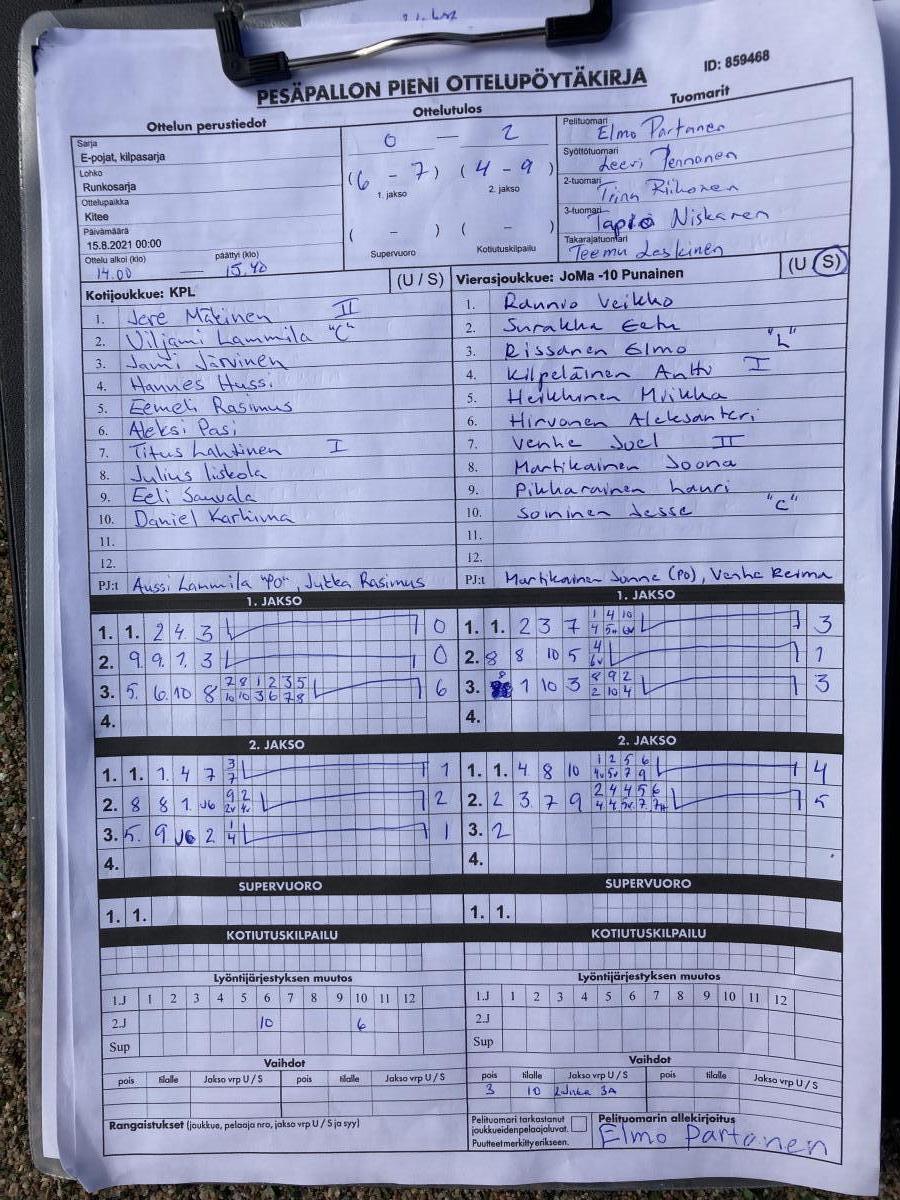 PESÄPALLON PIENI OTTELUPÖYTÄKIRJA
ID: 859468
Ottelun perustiedot
Sarja
E-pojat, kilpasarja
Lohko
Runkosarja
Ottelupaikka
Kitee
Päivämäärä
15.8.2021 00:00
Ottelu alkoi (klo) päättyi (klo)
14.00 — 15.40
Ottelutulos
0 — 2
(6 - 7) (4 - 9)
1. jakso 2. jakso
( - ) ( - )
Supervuoro Kotiutuskilpailu
Tuomarit
Pelituomari
Elmo Partanen
Syöttötuomari
Leevi Pennanen
2-tuomari
Tiina Riikonen
3-tuomari
Tapio Niskanen
Takarajatuomari
Teemu Laskinen
Kotijoukkue: KPL (U / S)
1. Jere Mäkinen II
2. Viljami Lammila "C"
3. Jami Järvinen
4. Hannes Hussi
5. Eemeli Rasimus
6. Aleksi Pasi
7. Titus Lahtinen I
8. Julius Iiskola
9. Eeli Sauvala
10. Daniel Karhima
11.
12.
PJ:t Aussi Lammila "PO", Jukka Rasimus
Vierasjoukkue: JoMa -10 Punainen (U / S)
1. Raunio Veikko
2. Surakka Eetu
3. Rissanen Elmo "L"
4. Kilpeläinen Anttu I
5. Heikkinen Miikka
6. Hirvonen Aleksanteri
7. Venhe Joel II
8. Martikainen Joona
9. Pikkarainen Lauri
10. Soininen Jesse "C"
11.
12.
PJ:t Martikainen Janne (PO), Venhe Reima
1. JAKSO
1. 1. 2 4 3 0
2. 9. 9. 1. 3 0
3. 5. 6. 10 8 6
2 8 1 2 3 5
10 10 3 6 7 8
4.
1. JAKSO
1. 1. 2 3 7 3
1 4 10
4 5v 6v
2. 8 8 10 5 1
4
6v
3. 8 1 10 3 3
8 9 2
2 10 4
4.
2. JAKSO
1. 1. 1. 4 7 1
3
7
2. 8 8 1. J6 2
9 2
2v 4v
3. 5. 9 J6 2 1
1
4
4.
2. JAKSO
1. 1. 4 8 10 4
1 2 5 6
4v 5v 7 9
2. 2 3. 7 9 5
2 4 4 5 6
4 4 5v 7. 7
3. 2
4.
SUPERVUORO
1. 1.
SUPERVUORO
1. 1.
KOTIUTUSKILPAILU
KOTIUTUSKILPAILU
Lyöntijärjestyksen muutos
1.J 1 2 3 4 5 6 7 8 9 10 11 12
2.J 10 6
Sup
Lyöntijärjestyksen muutos
1.J 1 2 3 4 5 6 7 8 9 10 11 12
2.J
Sup
Vaihdot
pois tilalle Jakso vrp U / S pois tilalle Jakso vrp U / S
Vaihdot
pois tilalle Jakso vrp U / S pois tilalle Jakso vrp U / S
3 10 3A
Rangaistukset (joukkue, pelaaja nro, jakso vrp U / S ja syy)
Pelituomari tarkastanut
joukkueidenpelaajaluvat.
Puutteet merkitty erikseen.
Pelituomarin allekirjoitus
Elmo Partanen